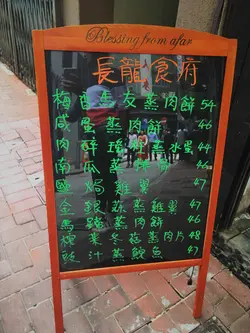 Blessing from afar
長龍食府
梅香生友蒸肉餅 54
咸蛋蒸肉餅 46
肉碎 蒸水蛋 44
南瓜蒸 46
焗雞翼 47
金銀蒜蒸雞翼 47
馬蹄蒸肉餅 46
欖菜冬菇蒸肉片 48
豉汁蒸鯇魚 47